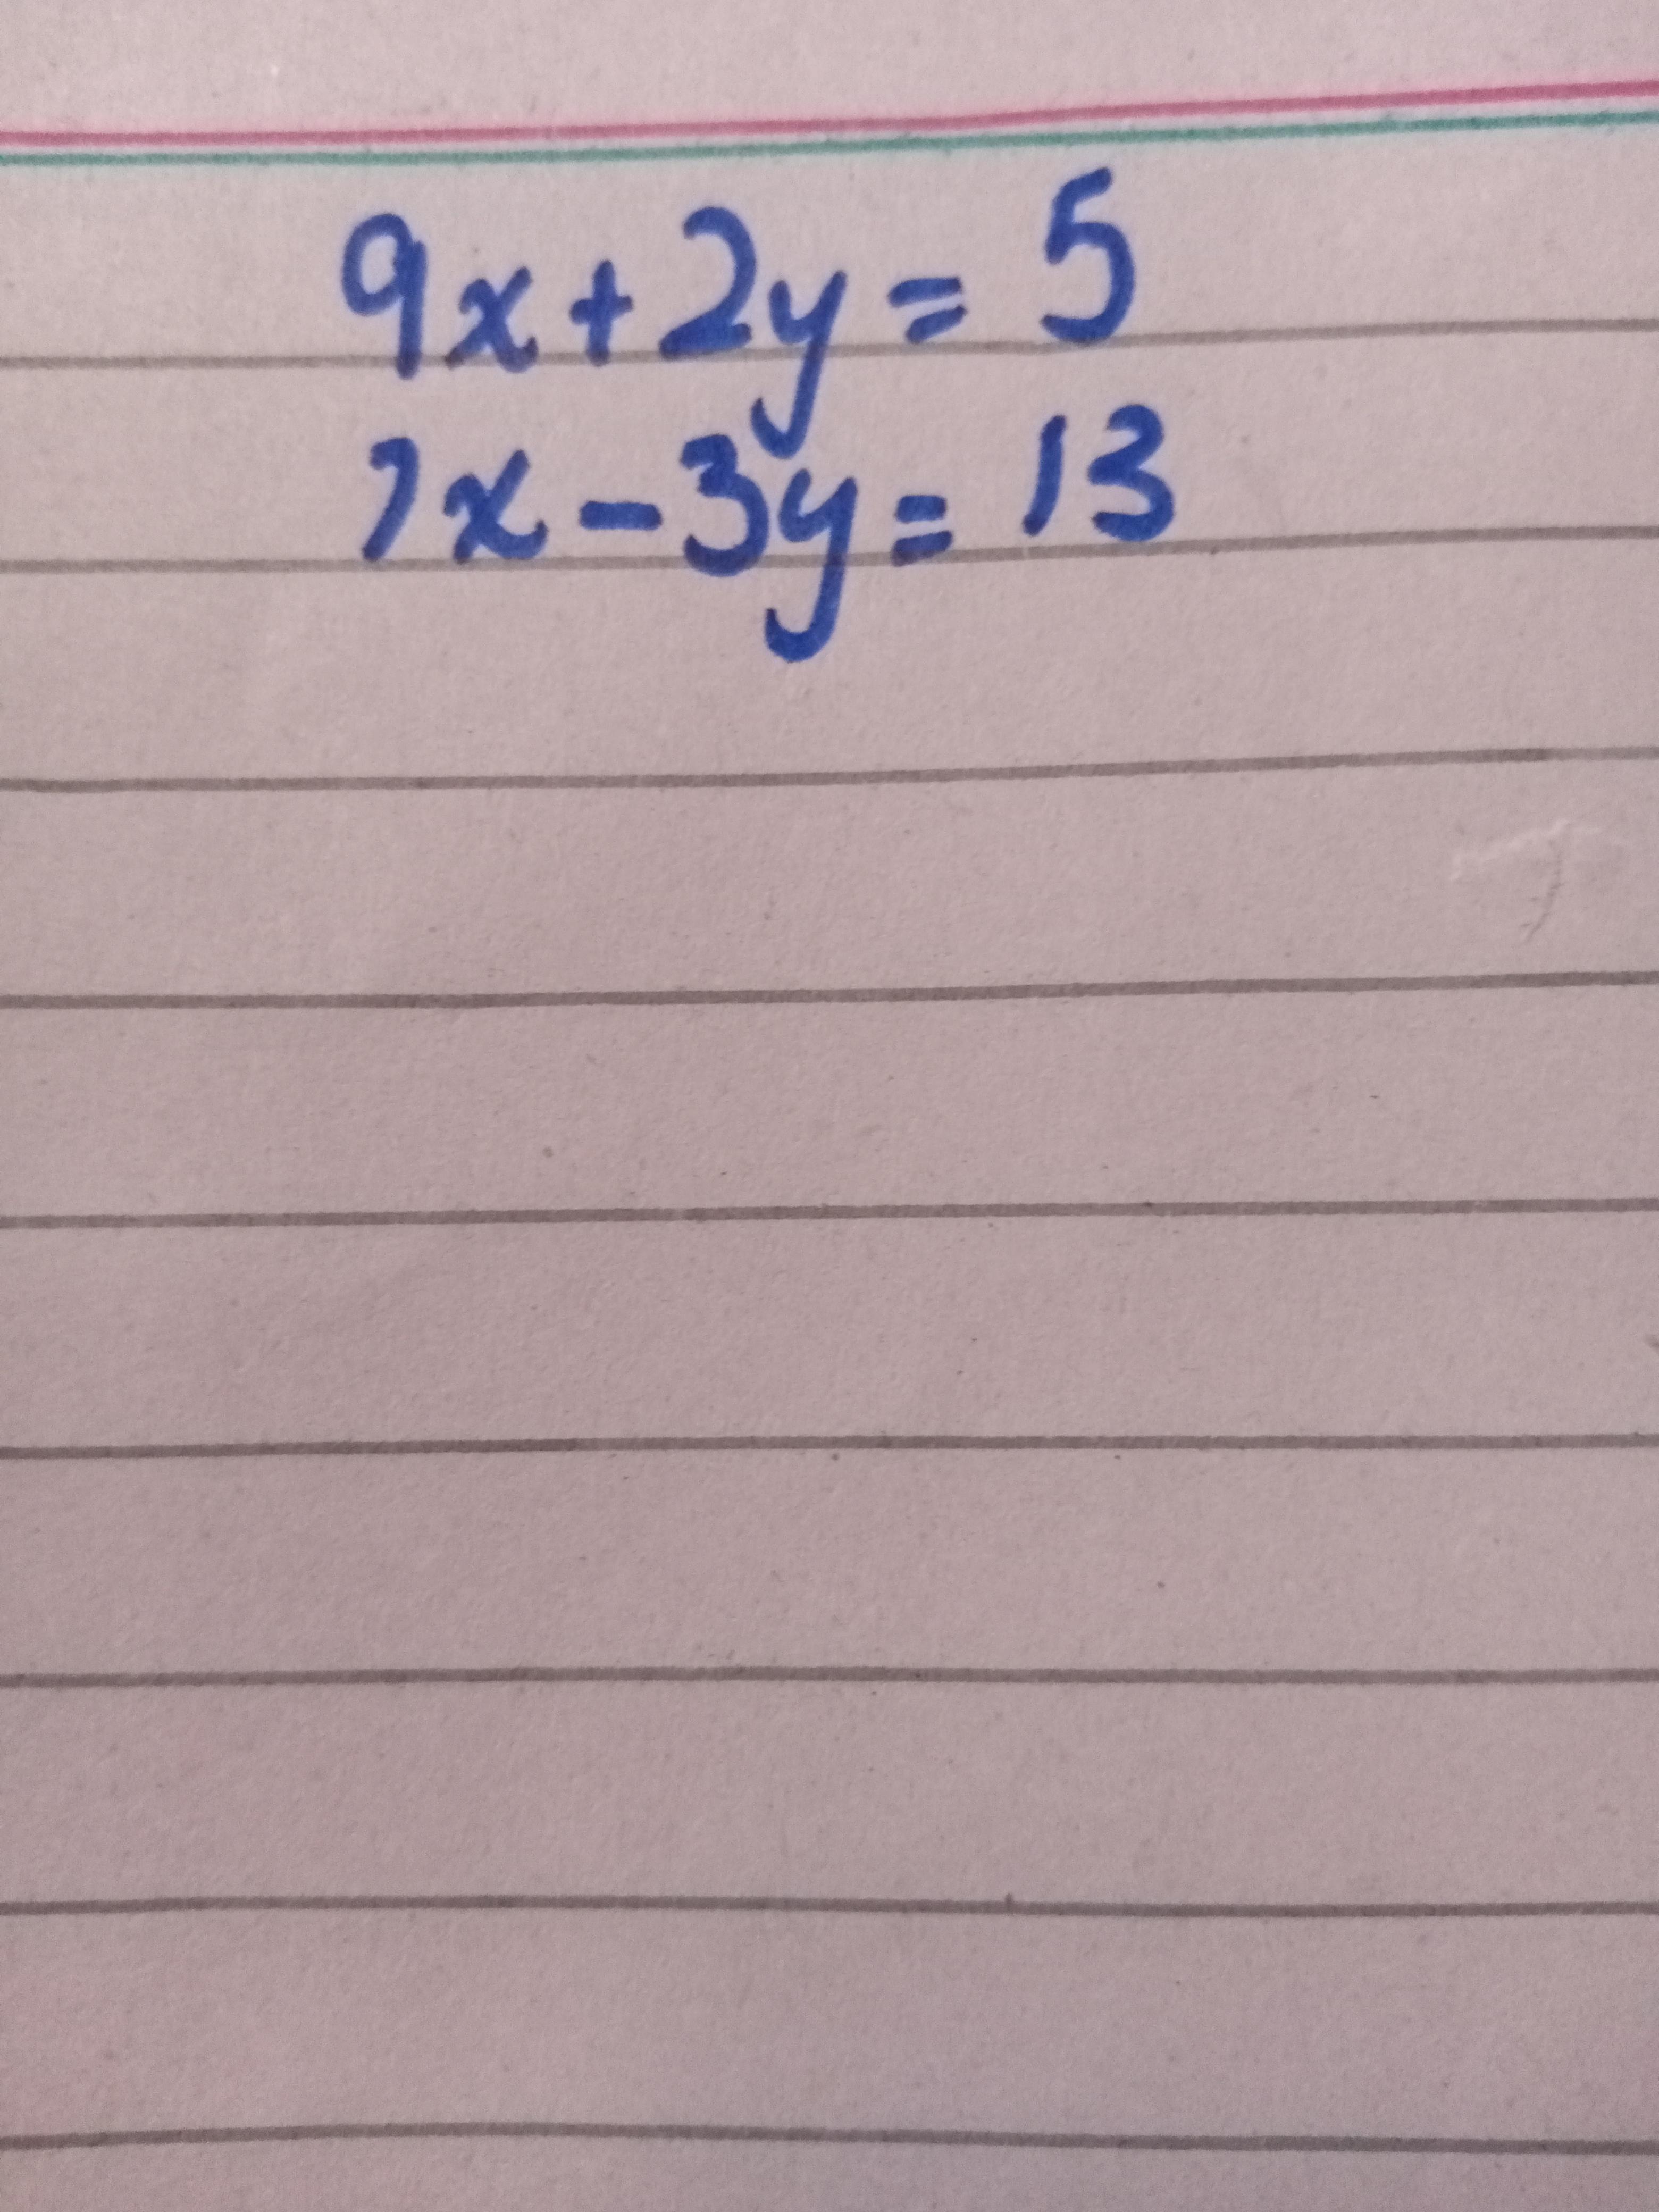 9x+2y= 5
7x-3y= 13